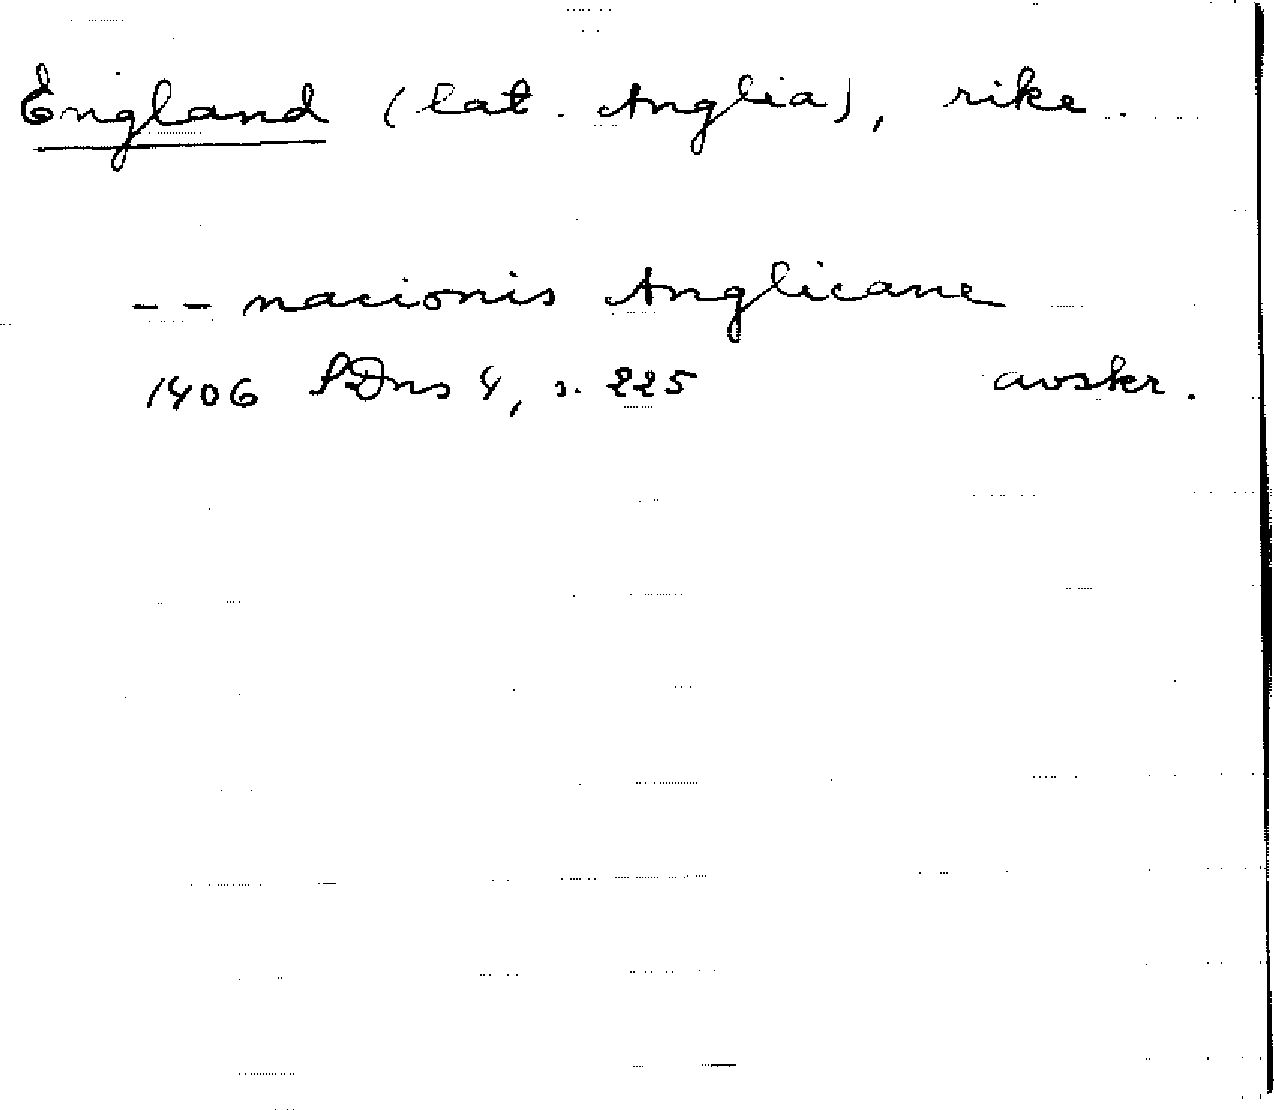 England (lat. Anglia), rike.
-- nacionis Anglicane
1406 SDns 4, s. 225 avskr.